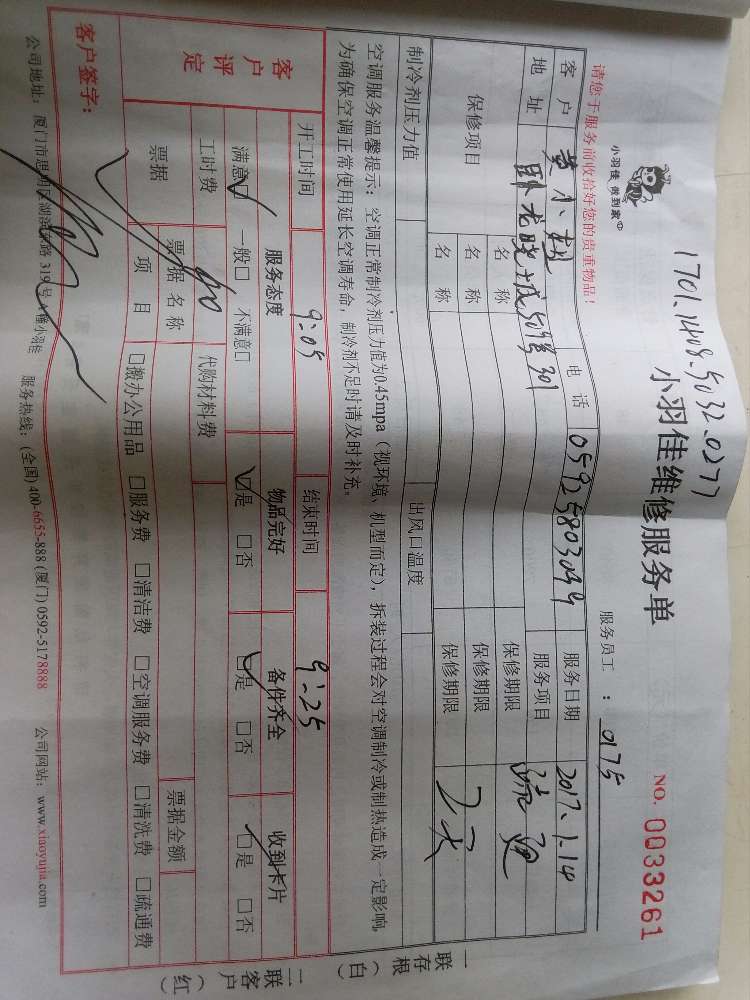 1701.1408.5032.0277
小羽佳 做到家
小羽佳维修服务单
NO. 0033261
请您于服务前收拾好您的贵重物品！
服务员工 ： 0175
客户 黄小 电话 05925803099 服务日期 2017.1.14
地址 卧龙晓城509号301 服务项目 疏通
保修项目 名称 保修期限
名称 保修期限
名称 保修期限 7天
制冷剂压力值 出风口温度
空调服务温馨提示：空调正常制冷剂压力值为0.45mpa（视环境、机型而定），拆装过程会对空调制冷或制热造成一定影响，
为确保空调正常使用延长空调寿命，制冷剂不足时请及时补充。
开工时间 9:05 结束时间 9:25
客户评定 服务态度 物品完好 备件齐全 收到卡片
满意□ 一般□ 不满意□ □是 □否 □是 □否 □是 □否
工时费 代购材料费
票据 票据名称 票据金额
项目 □搬办公用品 □服务费 □清洁费 □空调服务费 □清洗费 □疏通费
客户签字：
公司地址：厦门市思明区湖滨 路 319号 小羽佳 服务热线：(全国) 400-6655-888 (厦门) 0592-5178888 公司网站：www.xiaoyujia.com
一联存根（白）
二联客户（红）